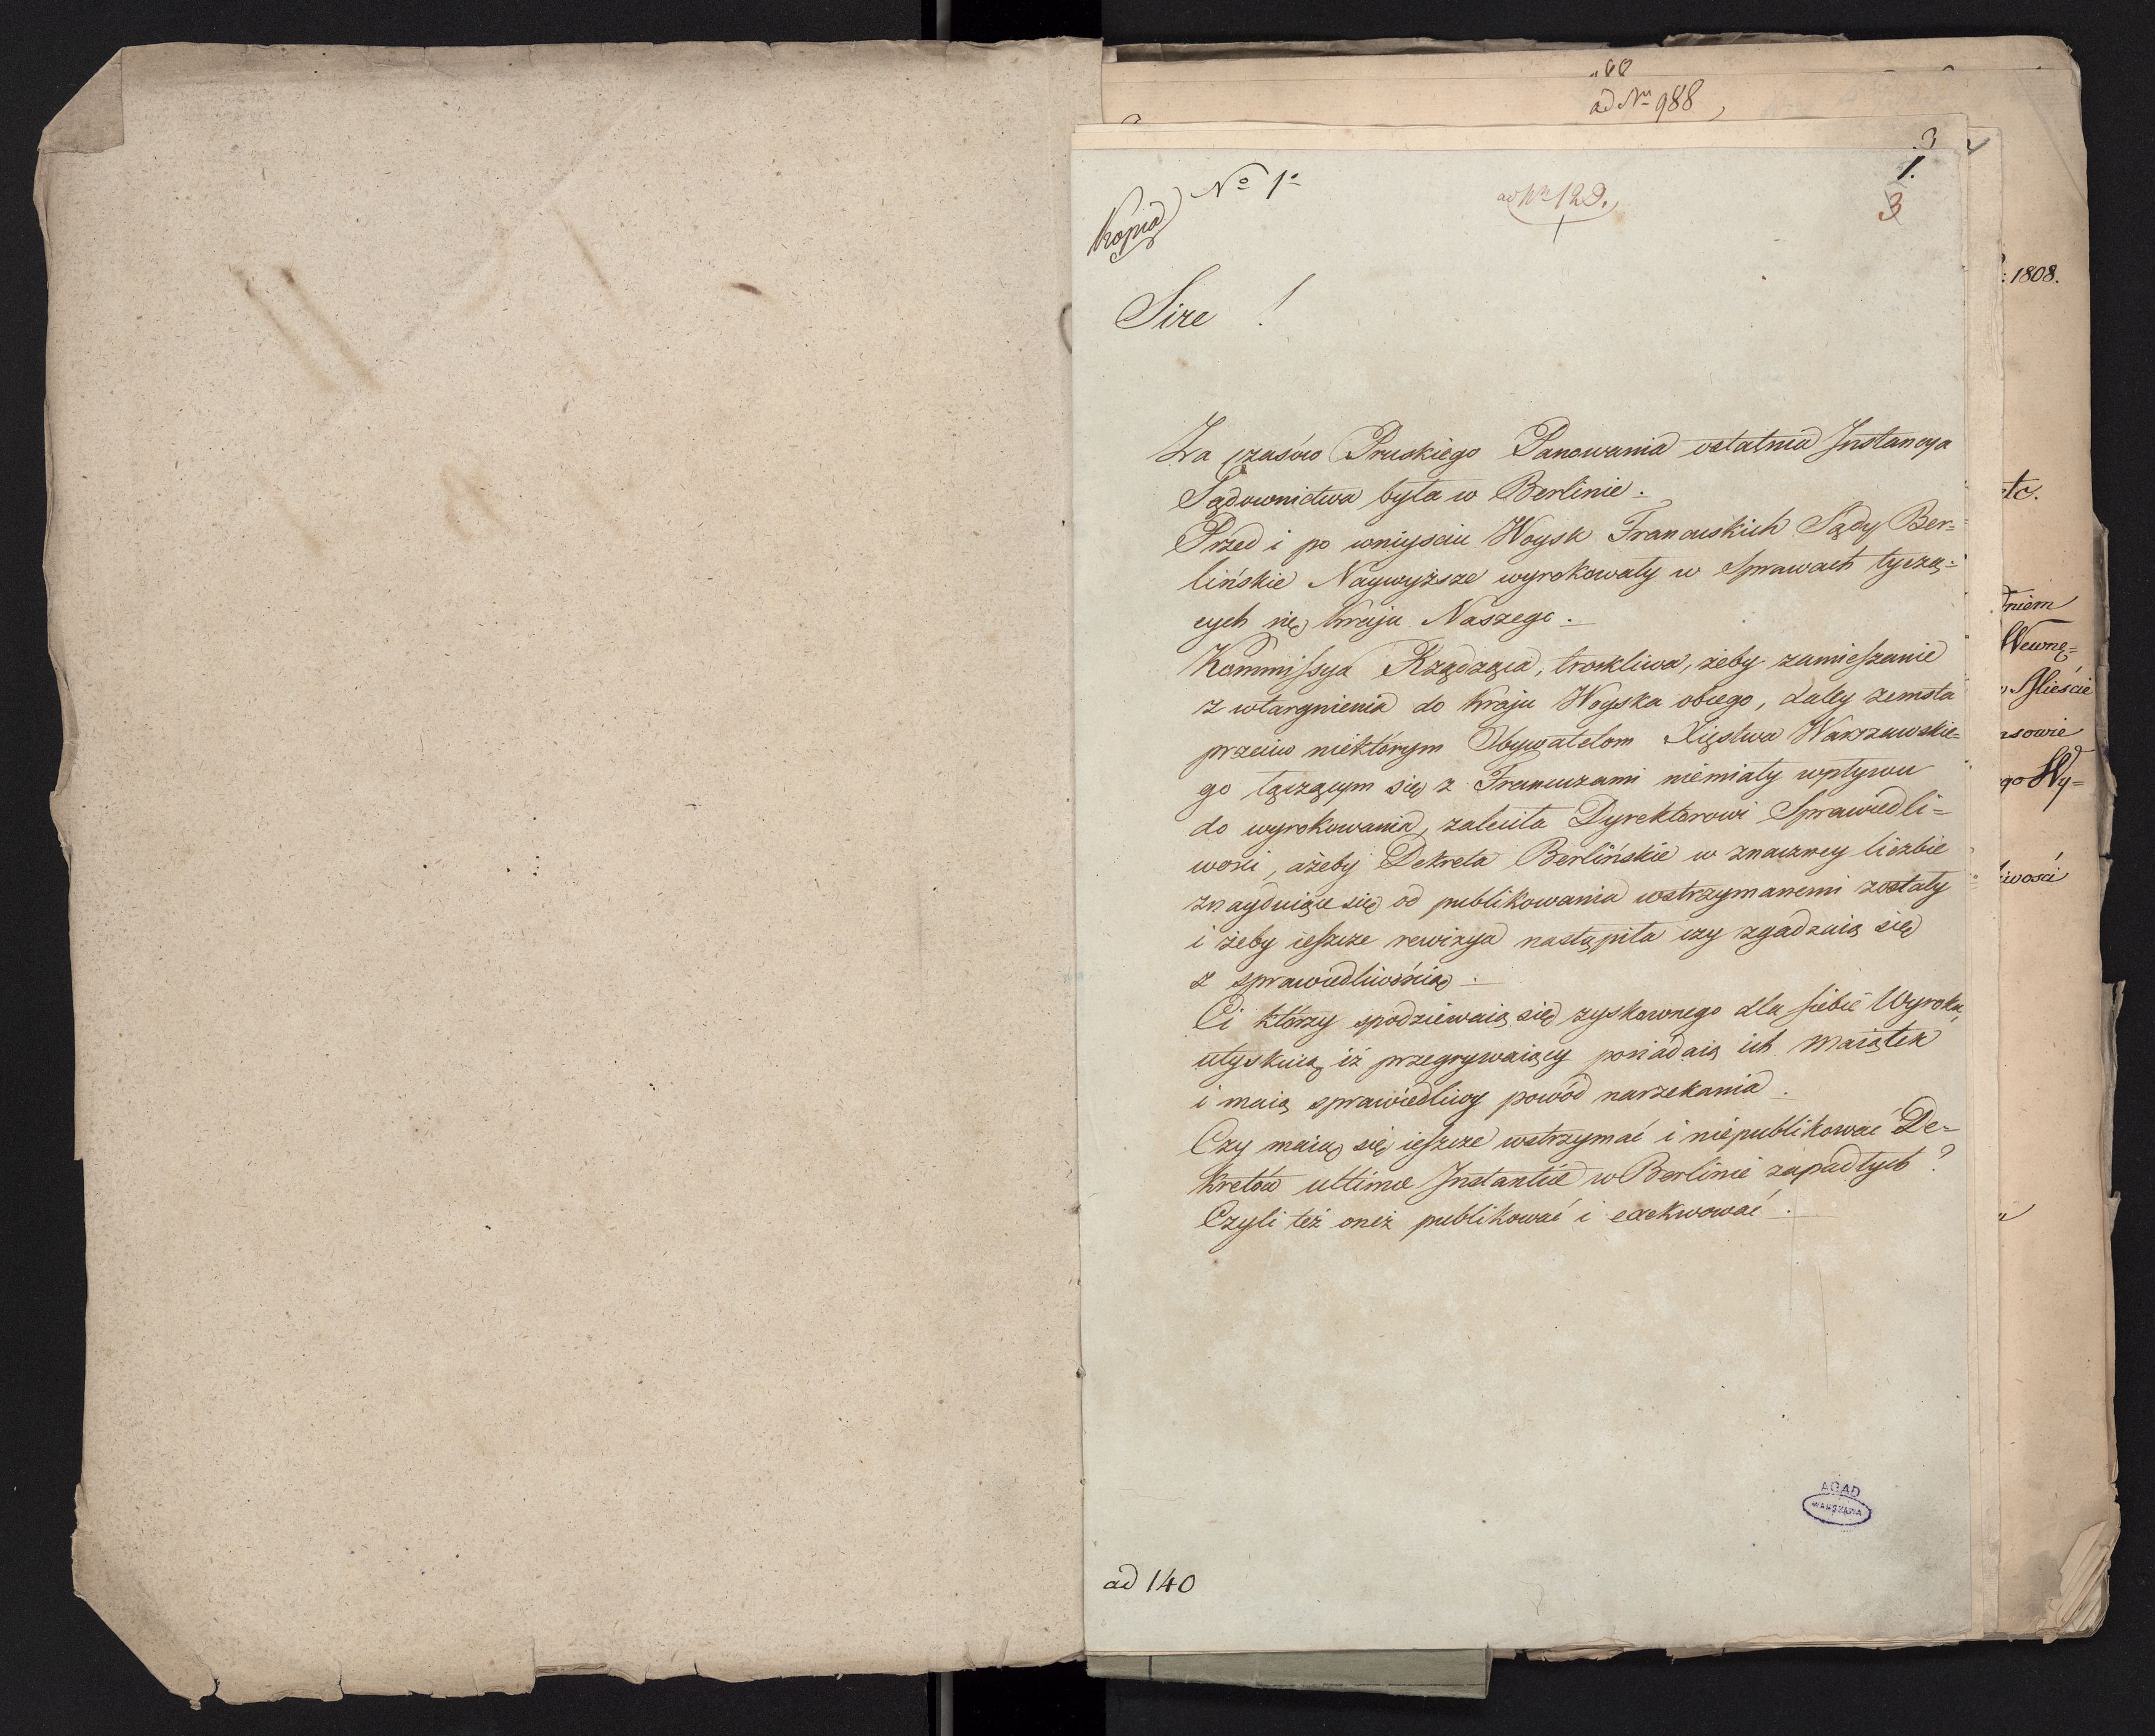 ad Nrum 988
3
1.
3
ad Nr 129.
No 1o
Kopia
Sire !
Za czasów Pruskiego Panowania ostatnia Instancya
Sądownictwa była w Berlinie.
Przed i po wniyściu Woysk Francuskich Sądy Ber=
lińskie Naywyższe wyrokowały w Sprawach tyczą=
cych się Kraju Naszego.
Kommissya Rządząca, troskliwa, żeby zamieszanie
z wtargnienia do Kraju Woyska obcego, daley zemsta
przeciw niektórym Obywatelom Xięstwa Warszawskie=
go łączącym się z Francuzami niemiały wpływu
do wyrokowania, zaleciła Dyrektorowi Sprawiedli=
wości, ażeby Dekreta Berlińskie w znaczney liczbie
znayduiące się od publikowania wstrzymanemi zostały
i żeby ieszcze rewizya nastąpiła czy zgadzaią się
z sprawiedliwością.
Ci którzy spodziewaią się zyskownego dla siebie Wyroku,
utyskuią, iż przegrywaiący posiadaią ich Maiątek
i maią sprawiedliwy powód narzekania.
Czy maią się ieszcze wstrzymać i niepublikować De=
kretów ultimae Instantiae w Berlinie zapadłych?
Czyli też oneż publikować i exekwować.
AGAD
WARSZAWA
ad 140
: 1808.
etc.
dniem
Wewnę=
Mieście
asowie
go Wy=
iwości